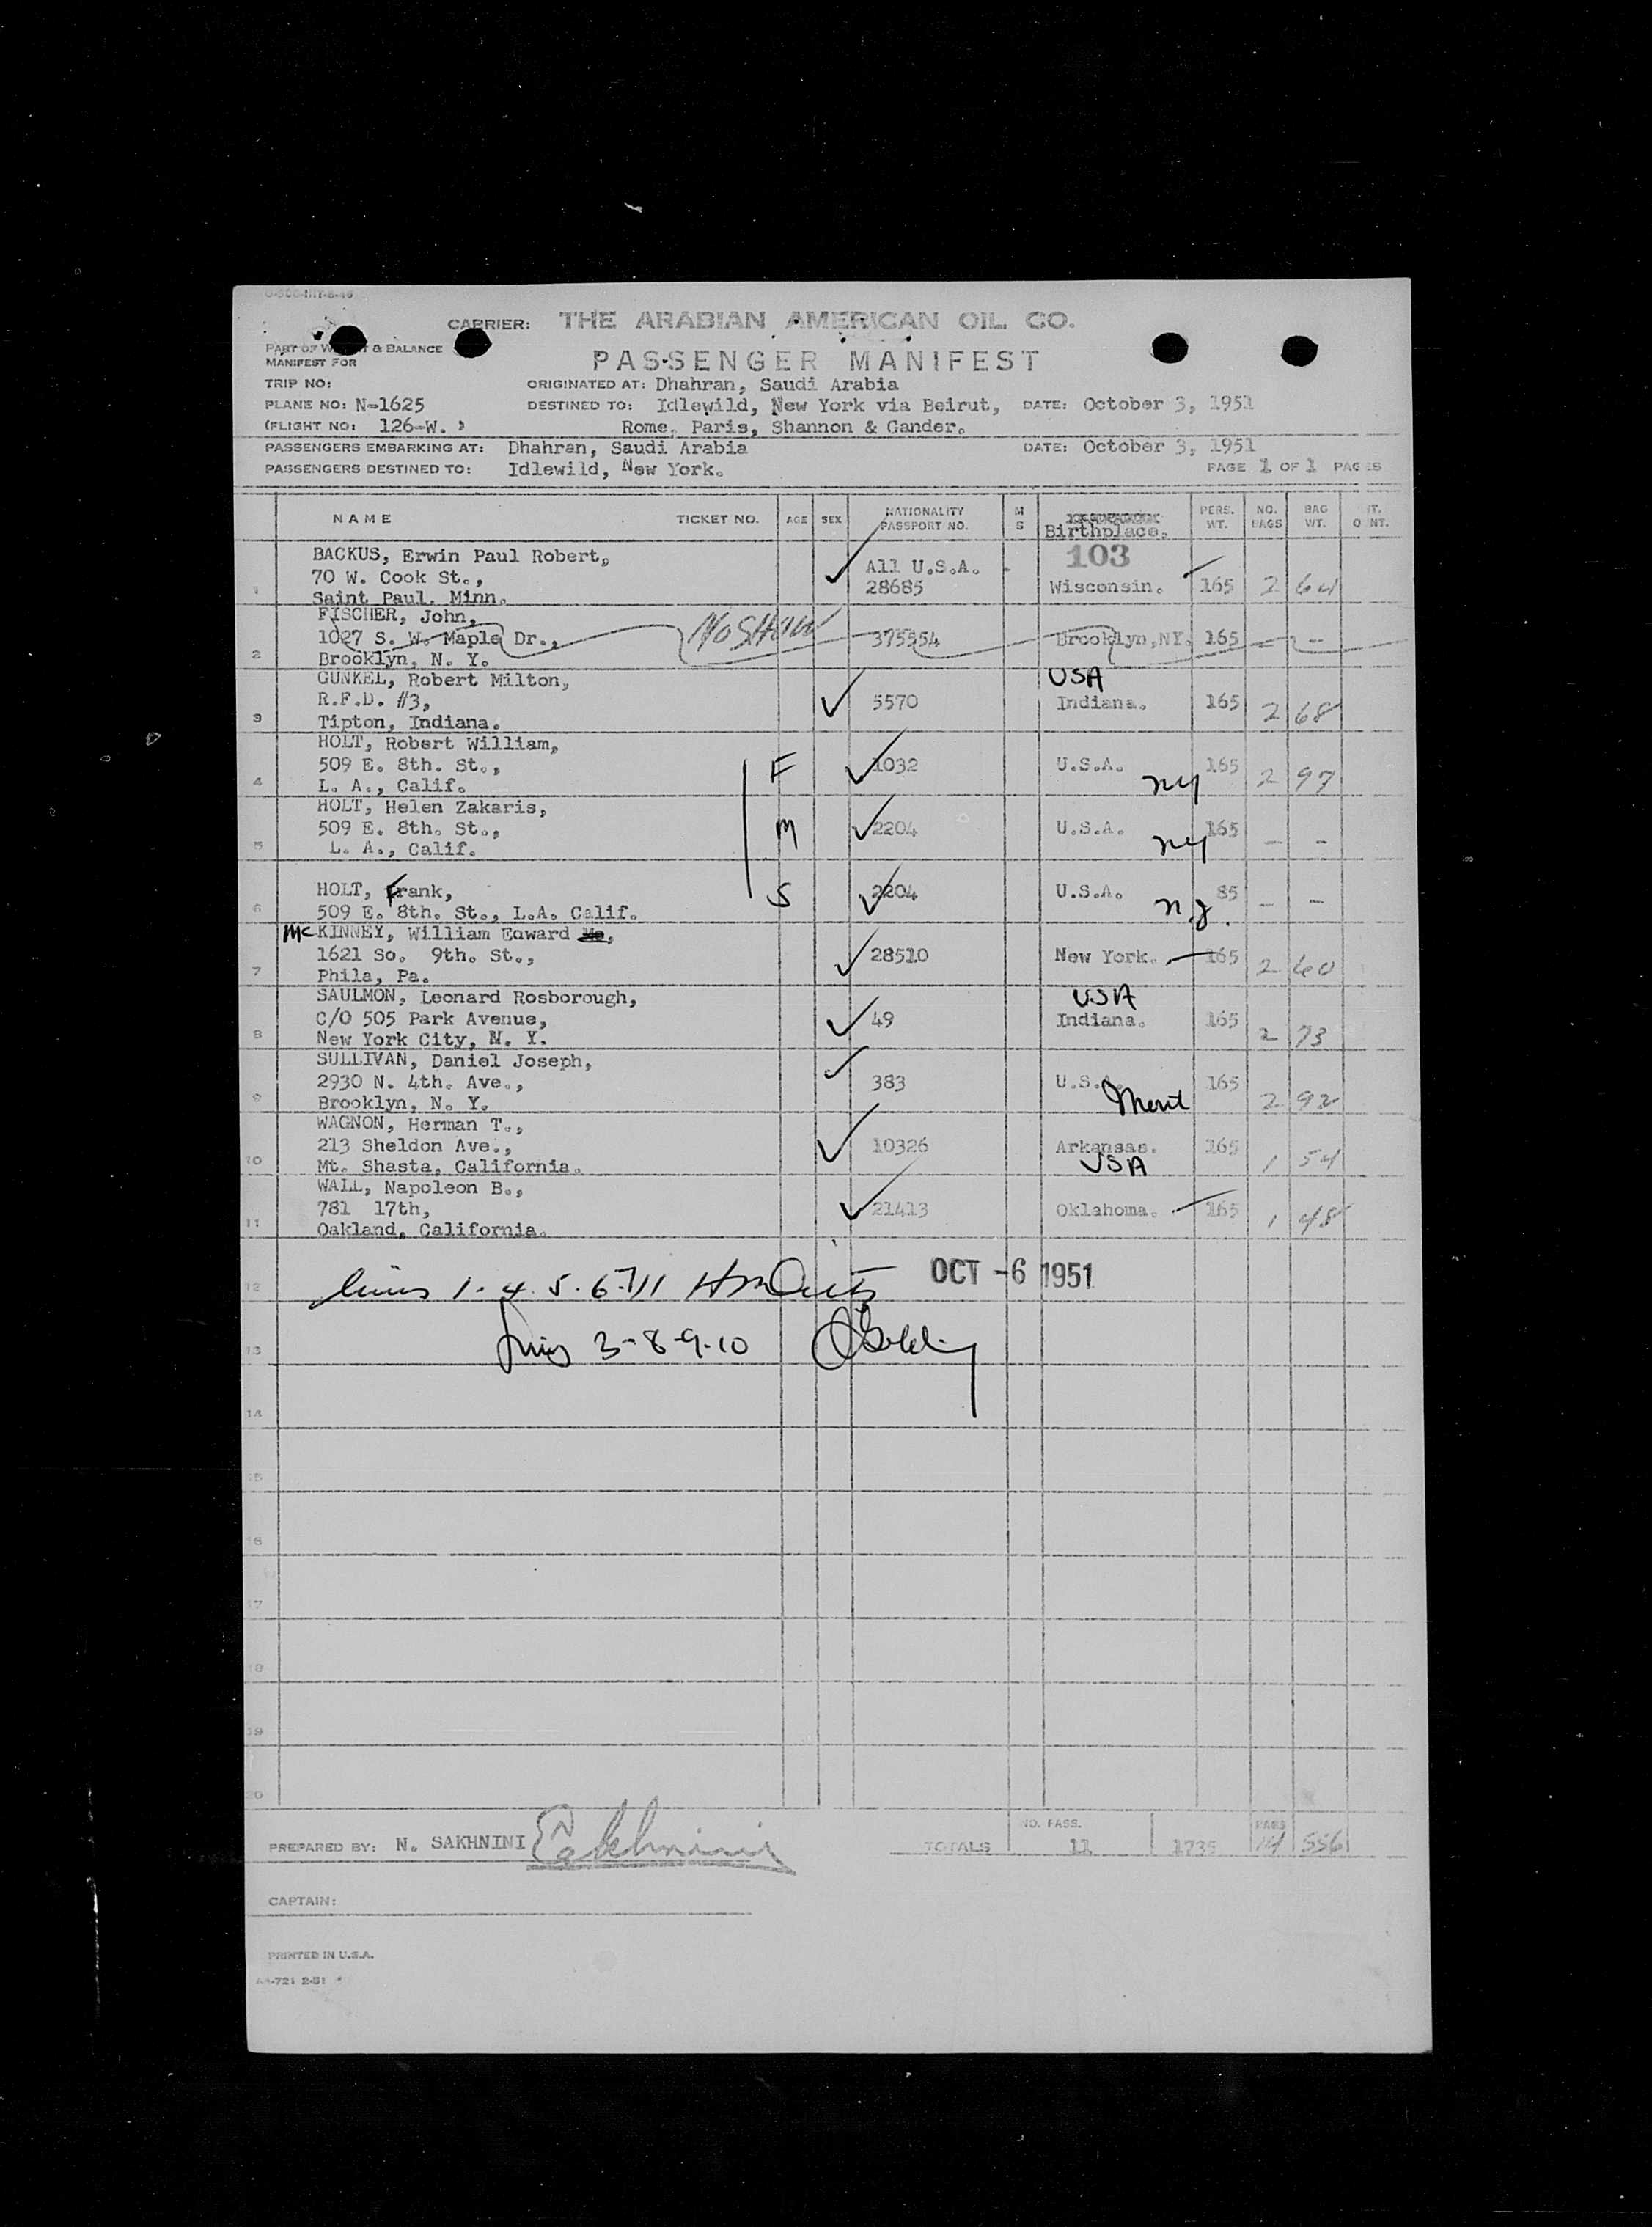 CARRIER: THE ARABIAN AMERICAN OIL CO.
PART OF & BALANCE
MANIFEST FOR
PASSENGER MANIFEST
TRIP NO:
ORIGINATED AT: Dhahran, Saudi Arabia
PLANE NO: N-1625
DESTINED TO: Idlewild, New York via Beirut, DATE: October 3, 1951
(FLIGHT NO: 126-W. )
Rome, Paris, Shannon & Gander.
PASSENGERS EMBARKING AT: Dhahran, Saudi Arabia DATE: October 3, 1951
PASSENGERS DESTINED TO: Idlewild, New York. PAGE 1 OF 1 PAGES
NAME TICKET NO. AGE SEX NATIONALITY PASSPORT NO. M S Birthplace. PERS. WT. NO. BAGS BAG WT.
103
BACKUS, Erwin Paul Robert,
All U.S.A.
70 W. Cook St.,
1 28685 Wisconsin. 165 2 64
Saint Paul. Minn.
FISCHER, John,
1027 S. W. Maple Dr., NO SHOW 375554 Brooklyn,NY. 165 - -
2 Brooklyn, N. Y.
GUNKEL, Robert Milton, USA
R.F.D. #3, 5570 Indiana. 165 2 68
3 Tipton, Indiana.
HOLT, Robert William,
509 E. 8th. St., F 1032 U.S.A. NY 165 2 97
4 L. A., Calif.
HOLT, Helen Zakaris,
509 E. 8th. St., M 2204 U.S.A. NY 165 - -
5 L. A., Calif.
HOLT, Frank, S 2204 U.S.A. N.J. 85 - -
6 509 E. 8th. St., L.A. Calif.
McKINNEY, William Edward
1621 So. 9th. St., 28510 New York. 165 2 60
7 Phila, Pa.
SAULMON, Leonard Rosborough, USA
C/O 505 Park Avenue, 49 Indiana. 165 2 73
8 New York City, N. Y.
SULLIVAN, Daniel Joseph,
2930 N. 4th. Ave., 383 U.S.A. 165 2 92
9 Brooklyn, N. Y.
WAGNON, Herman T.,
213 Sheldon Ave., 10326 Arkansas. 165 1 54
10 Mt. Shasta, California. USA
WALL, Napoleon B.,
781 17th, 21413 Oklahoma. 165 1 48
11 Oakland, California.
12 1. 4. 5. 6. 7. 11 OCT -6 1951
13 3-8-9-10
14
15
16
17
18
19
20
PREPARED BY: N. SAKHNINI Sakhnini TOTALS NO. PASS. 11 1735 BAGS 14 556
CAPTAIN:
PRINTED IN U.S.A.
721 2-51